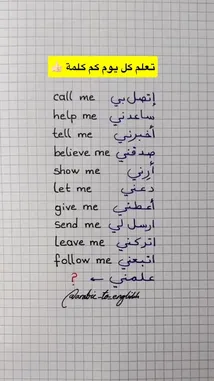 تعلم كل يوم كم كلمة 👍🏻
call me إتصل بي
help me ساعدني
tell me أخبرني
believe me صدقني
show me أرني
let me دعني
give me أعطني
send me ارسل لي
leave me اتركني
follow me اتبعني
? ← علمني
@arabic_to_english